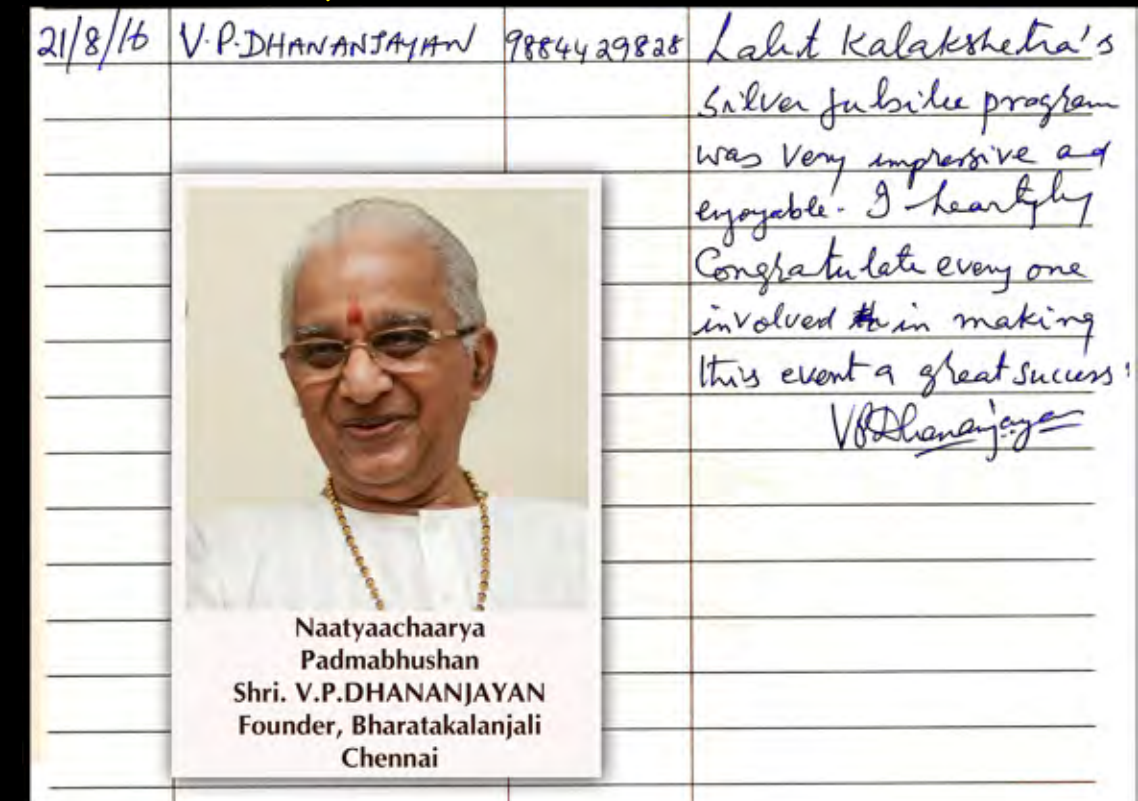 21/8/16 V.P.DHANANJAYAN 9884429828 Lalit Kalakshetra's
Silver Jubilee program
was very impressive and
enjoyable. I heartyly
Congratulate every one
involved in making
this event a great success!
VPDhananjayan
Naatyaachaarya
Padmabhushan
Shri. V.P.DHANANJAYAN
Founder, Bharatakalanjali
Chennai